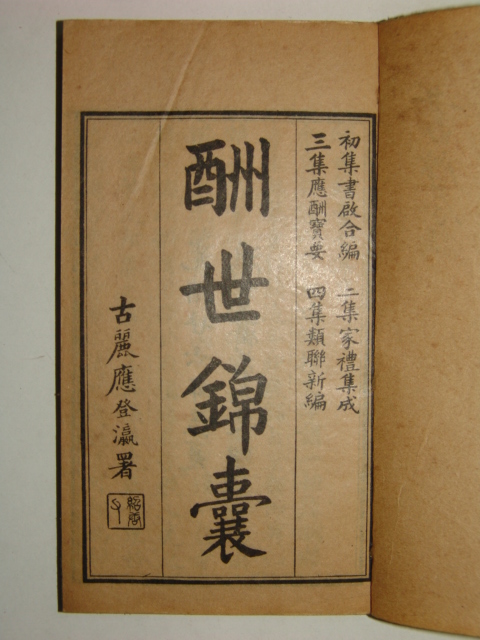 初集書啟合編 二集家禮集成
三集應酬寶要 四集類聯新編
酬世錦囊
古麗應登瀛署